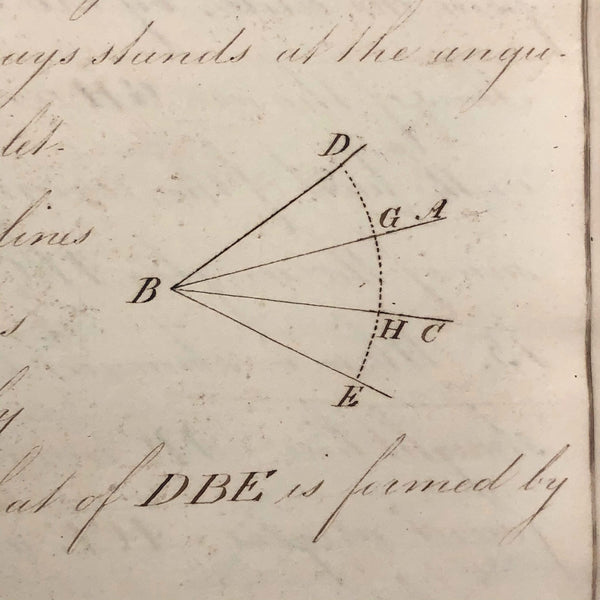 ays stands at the angu-
let
D
G A
lines
B
s
H C
y
E
at of DBE is formed by